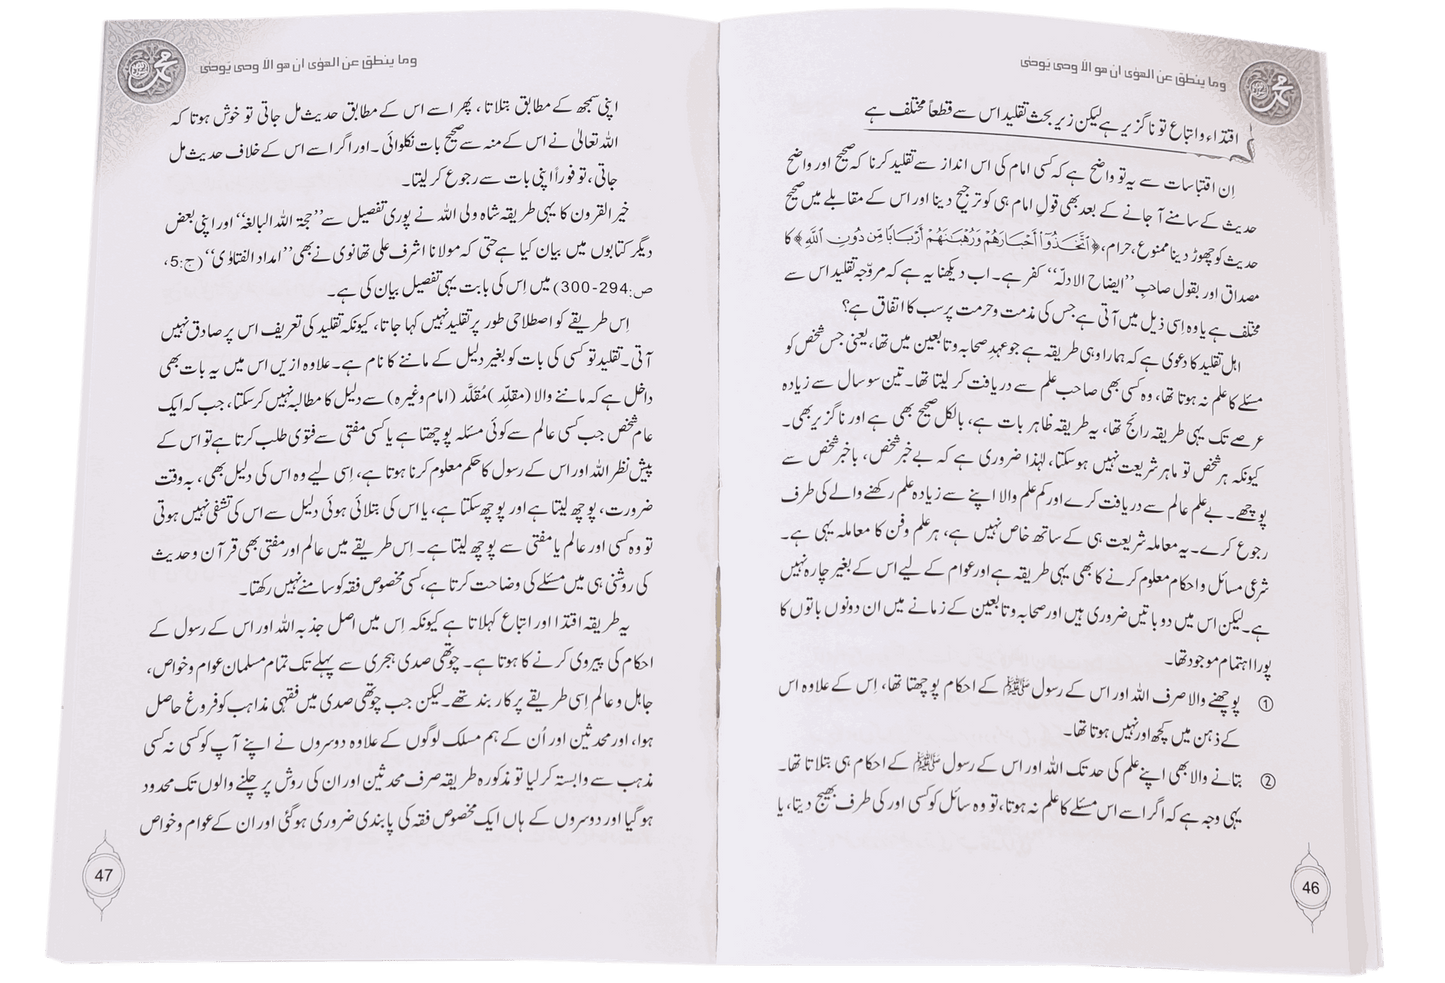 وما ینطق عن الهوٰی ان هو الا وحی یوحٰی
اقتداء و اتباع تو ناگزیر ہے لیکن زیر بحث تقلید اس سے قطعاً مختلف ہے
اِن اقتباسات سے یہ تو واضح ہے کہ کسی امام کی اس انداز سے تقلید کرنا کہ صحیح اور واضح
حدیث کے سامنے آ جانے کے بعد بھی قولِ امام ہی کو ترجیح دینا اور اس کے مقابلے میں صحیح
حدیث کو چھوڑ دینا ممنوع، حرام، ﴿اتَّخَذُوٓا اَحْبَارَهُمْ وَرُهْبَانَهُمْ اَرْبَابًا مِّنْ دُوْنِ اللّٰهِ﴾ کا
مصداق اور بقول صاحبِ ’’ایضاح الادلہ‘‘ کفر ہے۔ اب دیکھنا یہ ہے کہ مروّجہ تقلید اس سے
مختلف ہے یا وہ اِسی ذیل میں آتی ہے جس کی مذمت و حرمت پر سب کا اتفاق ہے؟
اہل تقلید کا دعویٰ ہے کہ ہمارا وہی طریقہ ہے جو عہدِ صحابہ و تابعین میں تھا، یعنی جس شخص کو
مسئلے کا علم نہ ہوتا تھا، وہ کسی بھی صاحب علم سے دریافت کر لیتا تھا۔ تین سو سال سے زیادہ
عرصے تک یہی طریقہ رائج تھا، یہ طریقہ ظاہر بات ہے، بالکل صحیح بھی ہے اور ناگزیر بھی۔
کیونکہ ہر شخص تو ماہر شریعت نہیں ہو سکتا، لہٰذا ضروری ہے کہ بے خبر شخص، باخبر شخص سے
پوچھے۔ بے علم عالم سے دریافت کرے اور کم علم والا اپنے سے زیادہ علم رکھنے والے کی طرف
رجوع کرے۔ یہ معاملہ شریعت ہی کے ساتھ خاص نہیں ہے، ہر علم و فن کا معاملہ یہی ہے۔
شرعی مسائل و احکام معلوم کرنے کا بھی یہی طریقہ ہے اور عوام کے لیے اس کے بغیر چارہ نہیں
ہے۔ لیکن اس میں دو باتیں ضروری ہیں اور صحابہ و تابعین کے زمانے میں ان دونوں باتوں کا
پورا اہتمام موجود تھا۔
① پوچھنے والا صرف اللہ اور اس کے رسول ﷺ کے احکام پوچھتا تھا، اِس کے علاوہ اس
کے ذہن میں کچھ اور نہیں ہوتا تھا۔
② بتانے والا بھی اپنے علم کی حد تک اللہ اور اس کے رسول ﷺ کے احکام ہی بتلاتا تھا۔
یہی وجہ ہے کہ اگر اسے اس مسئلے کا علم نہ ہوتا، تو وہ سائل کو کسی اور کی طرف بھیج دیتا، یا
46
وما ینطق عن الهوٰی ان هو الا وحی یوحٰی
اپنی سمجھ کے مطابق بتلاتا، پھر اسے اس کے مطابق حدیث مل جاتی تو خوش ہوتا کہ
اللہ تعالیٰ نے اس کے منہ سے صحیح بات نکلوائی۔ اور اگر اسے اس کے خلاف حدیث مل
جاتی، تو فوراً اپنی بات سے رجوع کر لیتا۔
خیر القرون کا یہی طریقہ شاہ ولی اللہ نے پوری تفصیل سے ’’حجۃ اللہ البالغۃ‘‘ اور اپنی بعض
دیگر کتابوں میں بیان کیا ہے حتی کہ مولانا اشرف علی تھانوی نے بھی ’’امداد الفتاوٰی‘‘ (ج:5،
ص:294-300) میں اِس کی بابت یہی تفصیل بیان کی ہے۔
اِس طریقے کو اصطلاحی طور پر تقلید نہیں کہا جاتا، کیونکہ تقلید کی تعریف اس پر صادق نہیں
آتی۔ تقلید تو کسی کی بات کو بغیر دلیل کے ماننے کا نام ہے۔ علاوہ ازیں اس میں یہ بات بھی
داخل ہے کہ ماننے والا (مقلِد) مُقَلَّد (امام وغیرہ) سے دلیل کا مطالبہ نہیں کر سکتا، جب کہ ایک
عام شخص جب کسی عالم سے کوئی مسئلہ پوچھتا ہے یا کسی مفتی سے فتویٰ طلب کرتا ہے تو اس کے
پیش نظر اللہ اور اس کے رسول کا حکم معلوم کرنا ہوتا ہے، اِسی لیے وہ اس کی دلیل بھی، بہ وقت
ضرورت، پوچھ لیتا ہے اور پوچھ سکتا ہے، یا اس کی بتلائی ہوئی دلیل سے اس کی تشفی نہیں ہوتی
تو وہ کسی اور عالم یا مفتی سے پوچھ لیتا ہے۔ اِس طریقے میں عالم اور مفتی بھی قرآن و حدیث
کی روشنی ہی میں مسئلے کی وضاحت کرتا ہے، کسی مخصوص فقہ کو سامنے نہیں رکھتا۔
یہ طریقہ اقتدا اور اتباع کہلاتا ہے کیونکہ اِس میں اصل جذبہ اللہ اور اس کے رسول کے
احکام کی پیروی کرنے کا ہوتا ہے۔ چوتھی صدی ہجری سے پہلے تک تمام مسلمان عوام و خواص،
جاہل و عالم اِسی طریقے پر کار بند تھے۔ لیکن جب چوتھی صدی میں فقہی مذاہب کو فروغ حاصل
ہوا، اور محدثین اور اُن کے ہم مسلک لوگوں کے علاوہ دوسروں نے اپنے آپ کو کسی نہ کسی
مذہب سے وابستہ کر لیا تو مذکورہ طریقہ صرف محدثین اور ان کی روش پر چلنے والوں تک محدود
ہو گیا اور دوسروں کے ہاں ایک مخصوص فقہ کی پابندی ضروری ہو گئی اور ان کے عوام و خواص
47